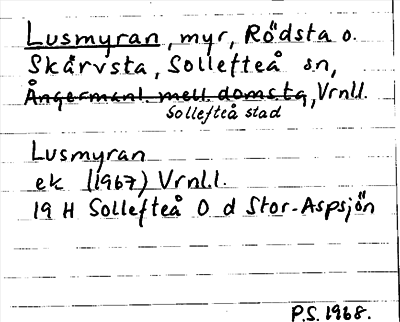 Lusmyran, myr, Rödsta o.
Skärvsta, Sollefteå sn,
Ångermanl. mell. doms.ta, Vrnll.
Sollefteå stad
Lusmyran
ek (1967) Vrnl.l.
19 H Sollefteå O d Stor-Aspsjön
P.S. 1968.